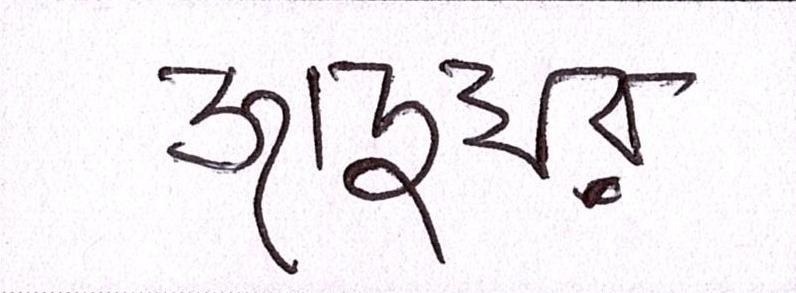 জাদুঘর